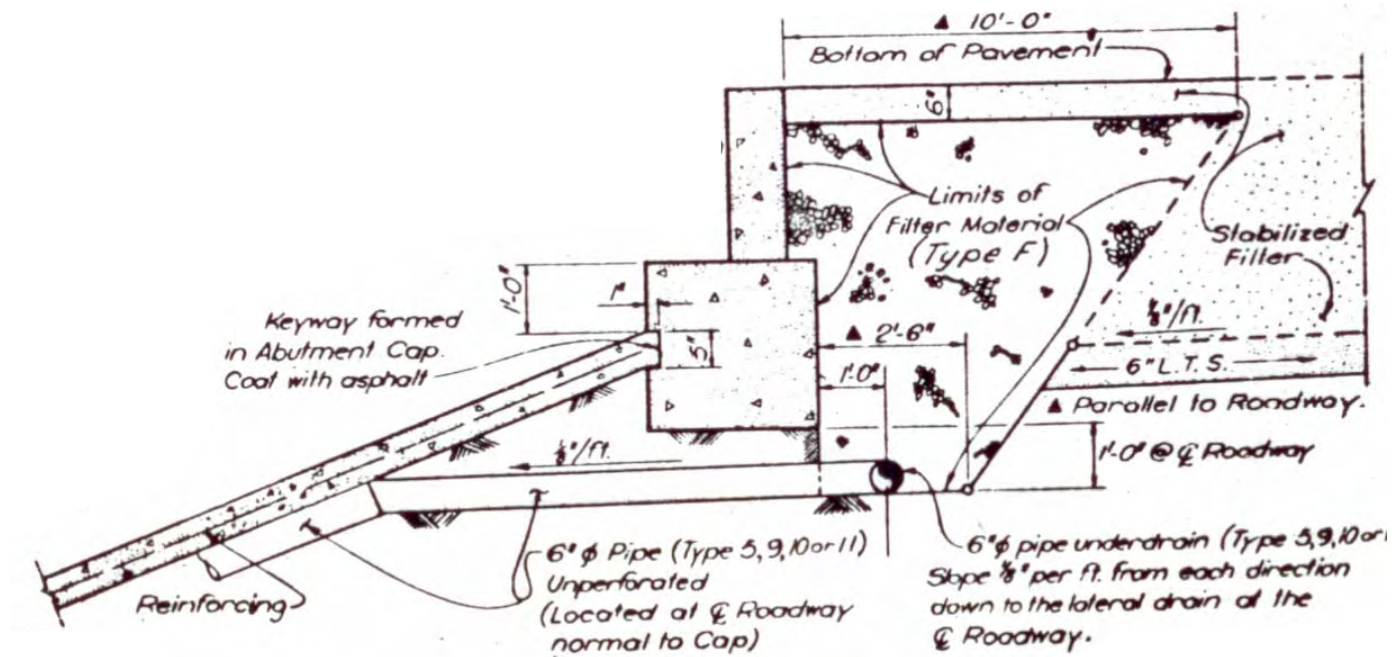 ▲ 10'-0"
Bottom of Pavement
6"
Limits of
Filter Material
(Type F)
Stabilized
Filler
1'-0"
1"
5"
Keyway formed
in Abutment Cap.
Coat with asphalt
▲ 2'-6"
1'-0"
⅛"/ft.
6" L.T.S.
▲ Parallel to Roadway.
1'-0" @ ℄ Roadway
⅛"/ft.
Reinforcing
6" ϕ Pipe (Type 5,9,10 or 11)
Unperforated
(Located at ℄ Roadway
normal to Cap)
6" ϕ pipe underdrain (Type 5,9,10 or 1
Slope ⅛" per ft. from each direction
down to the lateral drain at the
℄ Roadway.